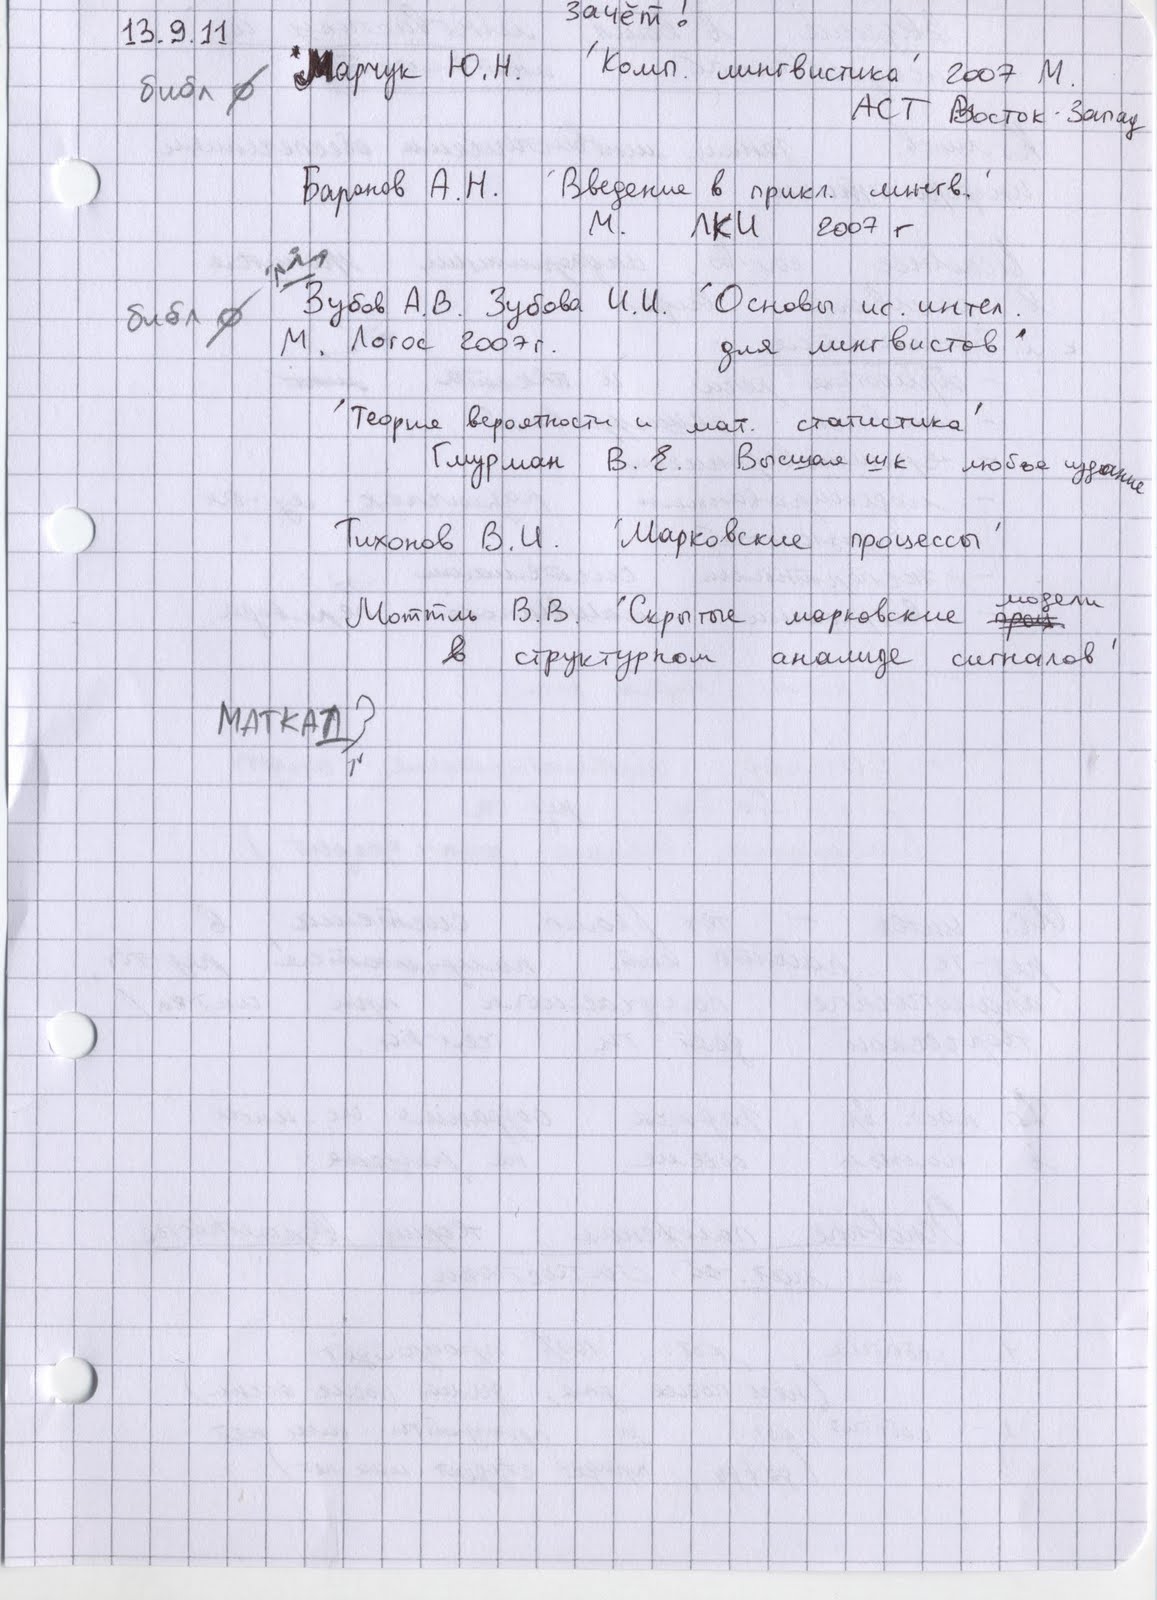 зачёт!
13.9.11
Марчук Ю.Н. 'Комп. лингвистика' 2007 М.
библ ∅
АСТ Восток-Запад
Баранов А.Н. 'Введение в прикл. лингв.'
М. ЛКИ 2007 г
библ ∅
Зубов А.В. Зубова И.И. 'Основы ис. интел.
М. Логос 2007г. для лингвистов'
'Теория вероятности и мат. статистика'
Гмурман В.Е. Высшая шк любое издание
Тихонов В.И. 'Марковские процессы'
модели
Моттль В.В 'Скрытые марковские
в структурном анализе сигналов'
МАТКАД?